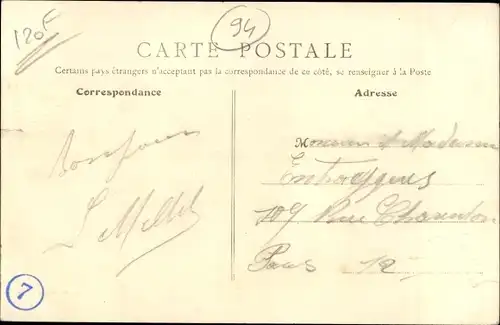 120F
94
CARTE POSTALE
Certains pays étrangers n'acceptant pas la correspondance de ce côté, se renseigner à la Poste
Correspondance
Adresse
Bonjour
Monsieur & Madame
109 Rue Charenton
Paris 12
7